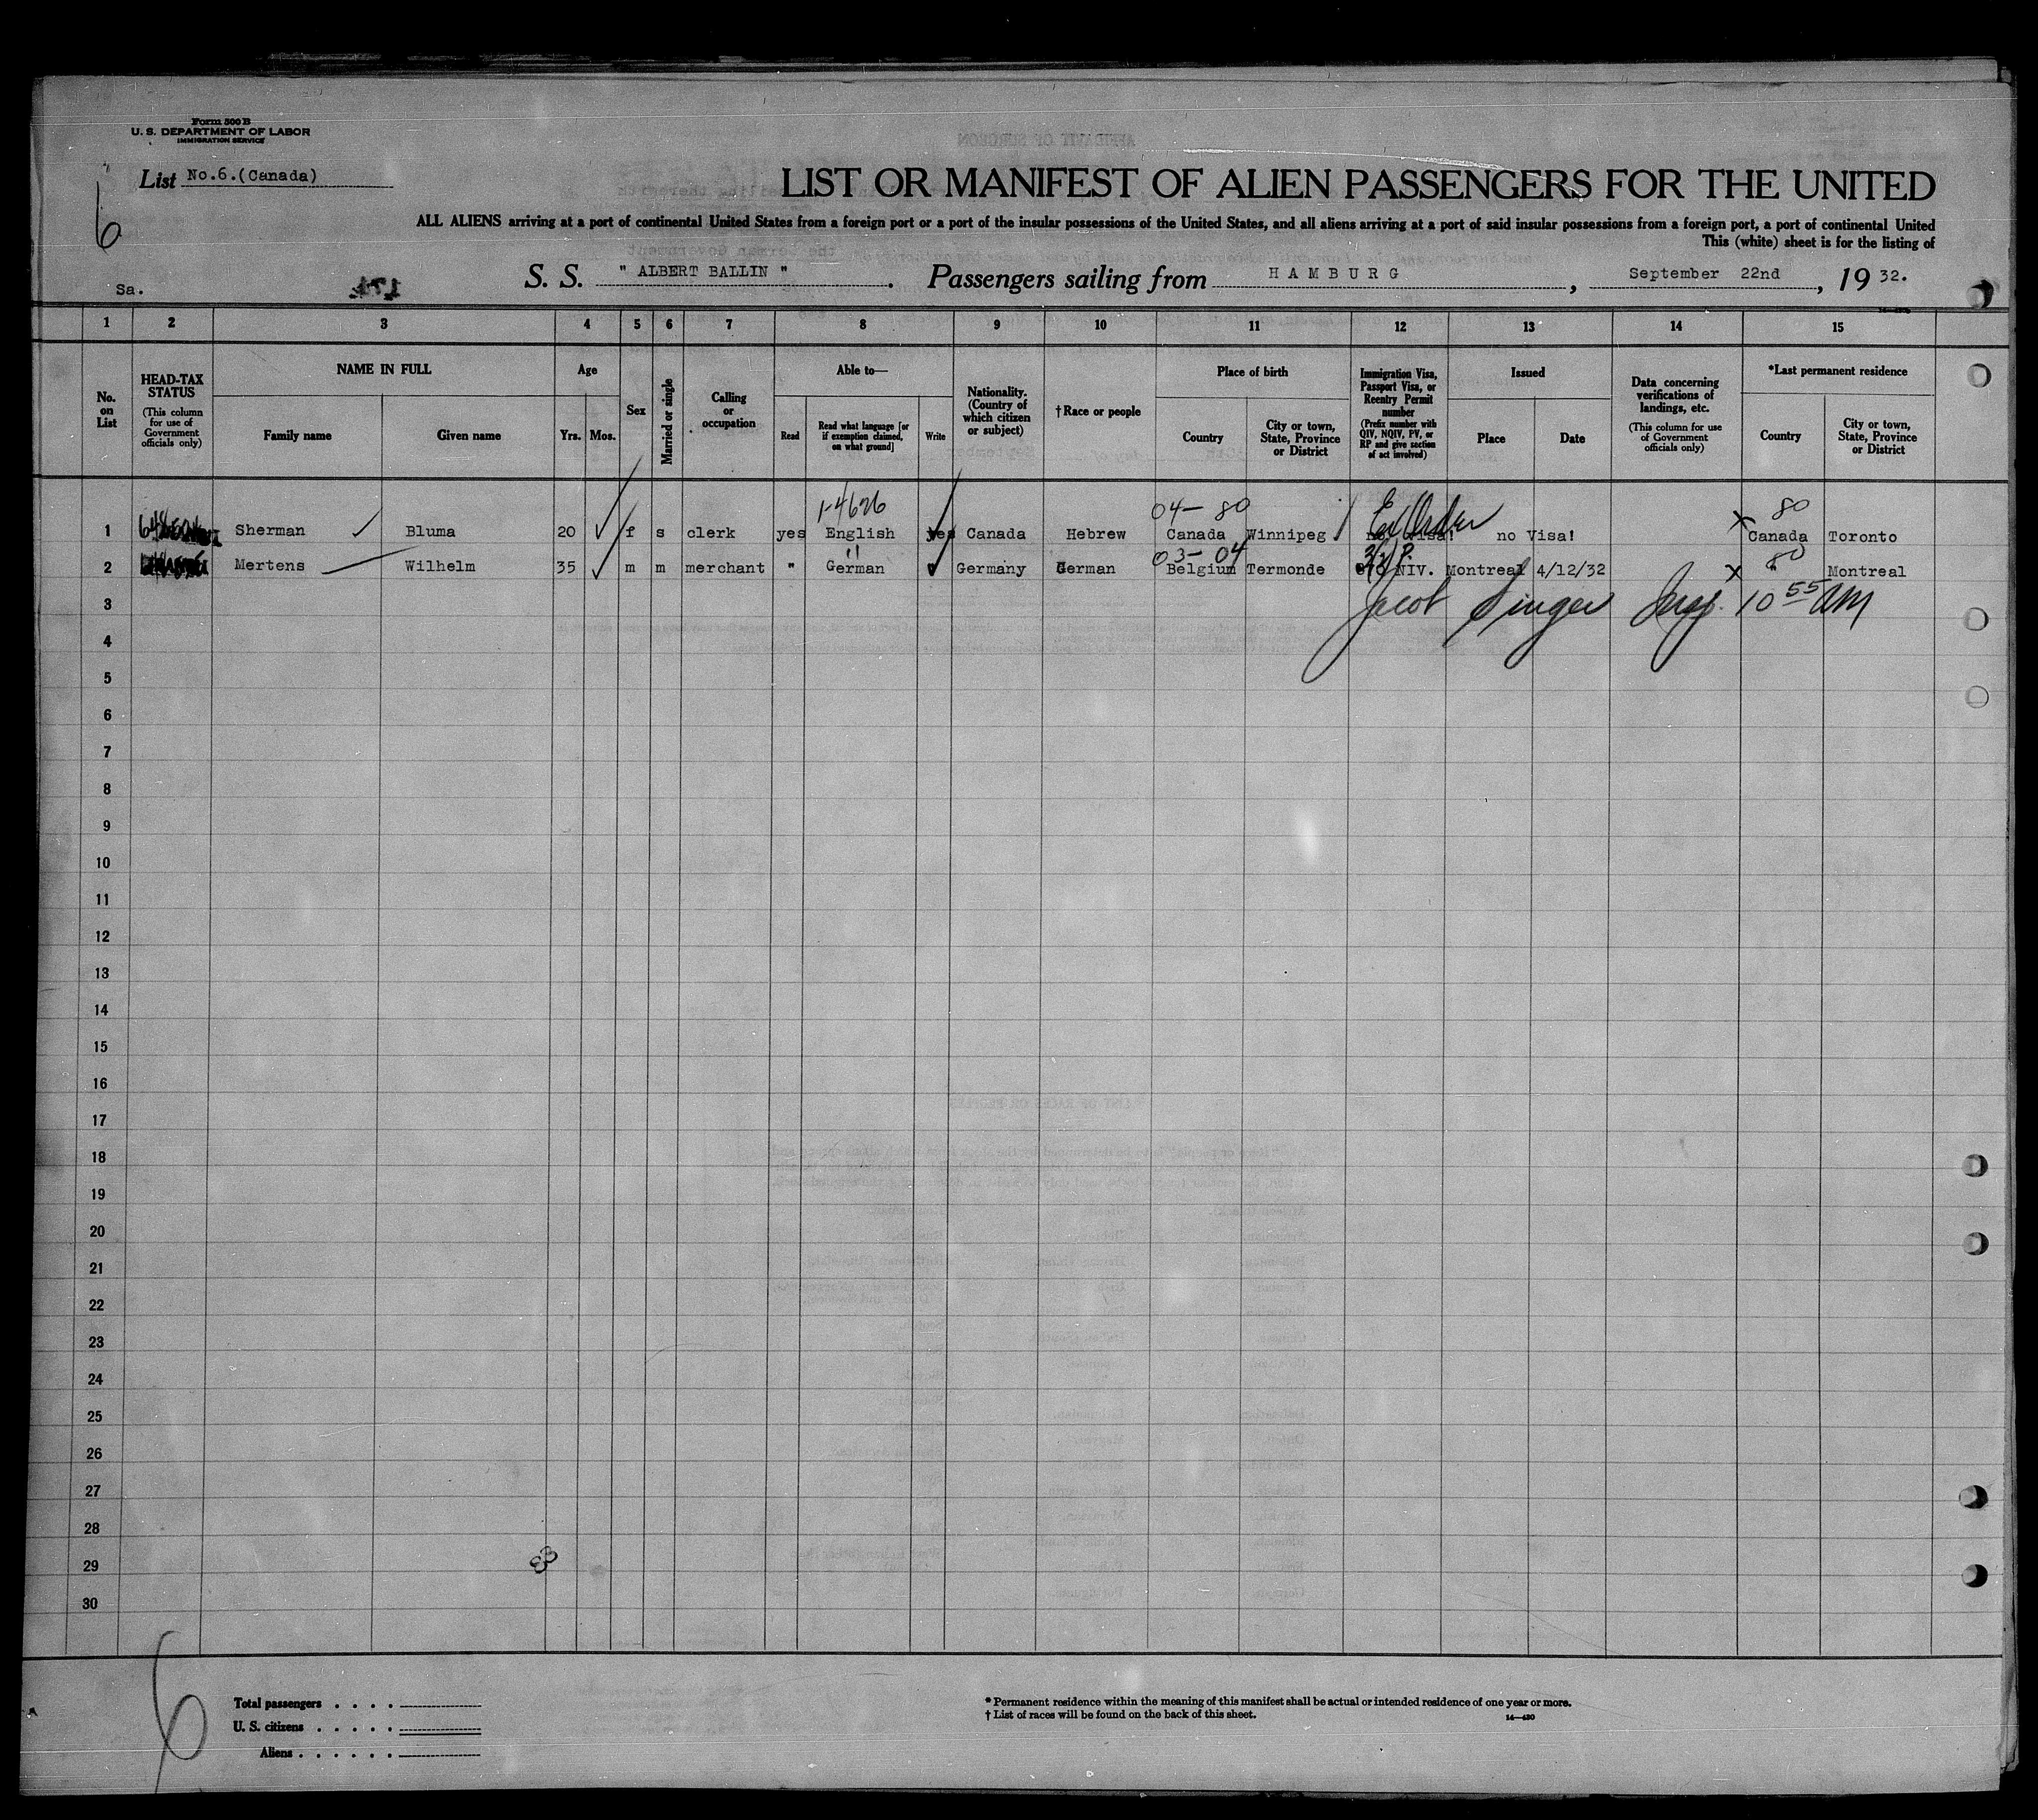 Form 500 B
U. S. DEPARTMENT OF LABOR
IMMIGRATION SERVICE
List No.6.(Canada)
6
LIST OR MANIFEST OF ALIEN PASSENGERS FOR THE UNITED
ALL ALIENS arriving at a port of continental United States from a foreign port or a port of the insular possessions of the United States, and all aliens arriving at a port of said insular possessions from a foreign port, a port of continental United
This (white) sheet is for the listing of
Sa.
S. S. " ALBERT BALLIN " . Passengers sailing from HAMBURG , September 22nd , 19 32.
1 2 3 4 5 6 7 8 9 10 11 12 13 14 15
No. on List
HEAD-TAX STATUS (This column for use of Government officials only)
NAME IN FULL
Family name
Given name
Age
Yrs. Mos.
Sex
Married or single
Calling or occupation
Able to—
Read
Read what language [or if exemption claimed, on what ground]
Write
Nationality. (Country of which citizen or subject)
†Race or people
Place of birth
Country
City or town, State, Province or District
Immigration Visa, Passport Visa, or Reentry Permit number (Prefix number with QIV, NQIV, PV, or RP and give section of act involved)
Issued
Place
Date
Data concerning verifications of landings, etc. (This column for use of Government officials only)
*Last permanent residence
Country
City or town, State, Province or District
1-4626 04-80 Ex Order 80
1 Sherman Bluma 20 f s clerk yes English yes Canada Hebrew Canada Winnipeg no Visa! no Visa! x Canada Toronto
" 03-04 80
2 Mertens Wilhelm 35 m m merchant " German " Germany German Belgium Termonde NIV. Montreal 4/12/32 x " Montreal
3 Jacob Singer Insp. 10 55 AM
4
5
6
7
8
9
10
11
12
13
14
15
16
17
18
19
20
21
22
23
24
25
26
27
28
29
30
83
6
Total passengers . . . .
U. S. citizens . . . . .
Aliens . . . . . .
* Permanent residence within the meaning of this manifest shall be actual or intended residence of one year or more.
† List of races will be found on the back of this sheet.
14—430